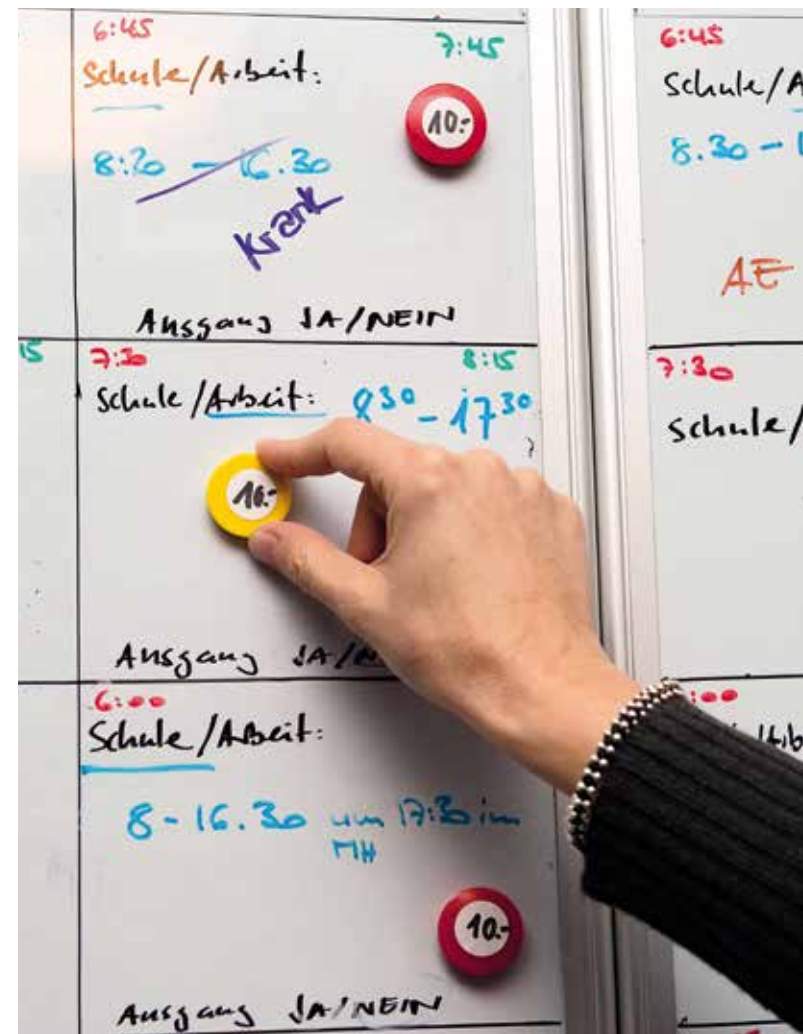 6:45 7:45
Schule/Arbeit:
10.-
8:30 - 16.30
Krank
Ausgang JA/NEIN
15
7:30 8:15
Schule/Arbeit: 8³⁰ - 17³⁰
10.-
Ausgang JA/
6:00
Schule/Arbeit:
8 - 16.30 um 17:30 im
MH
10.-
Ausgang JA/NEIN
6:45
Schule/A
8.30 -
AE
7:30
Schule/
:00